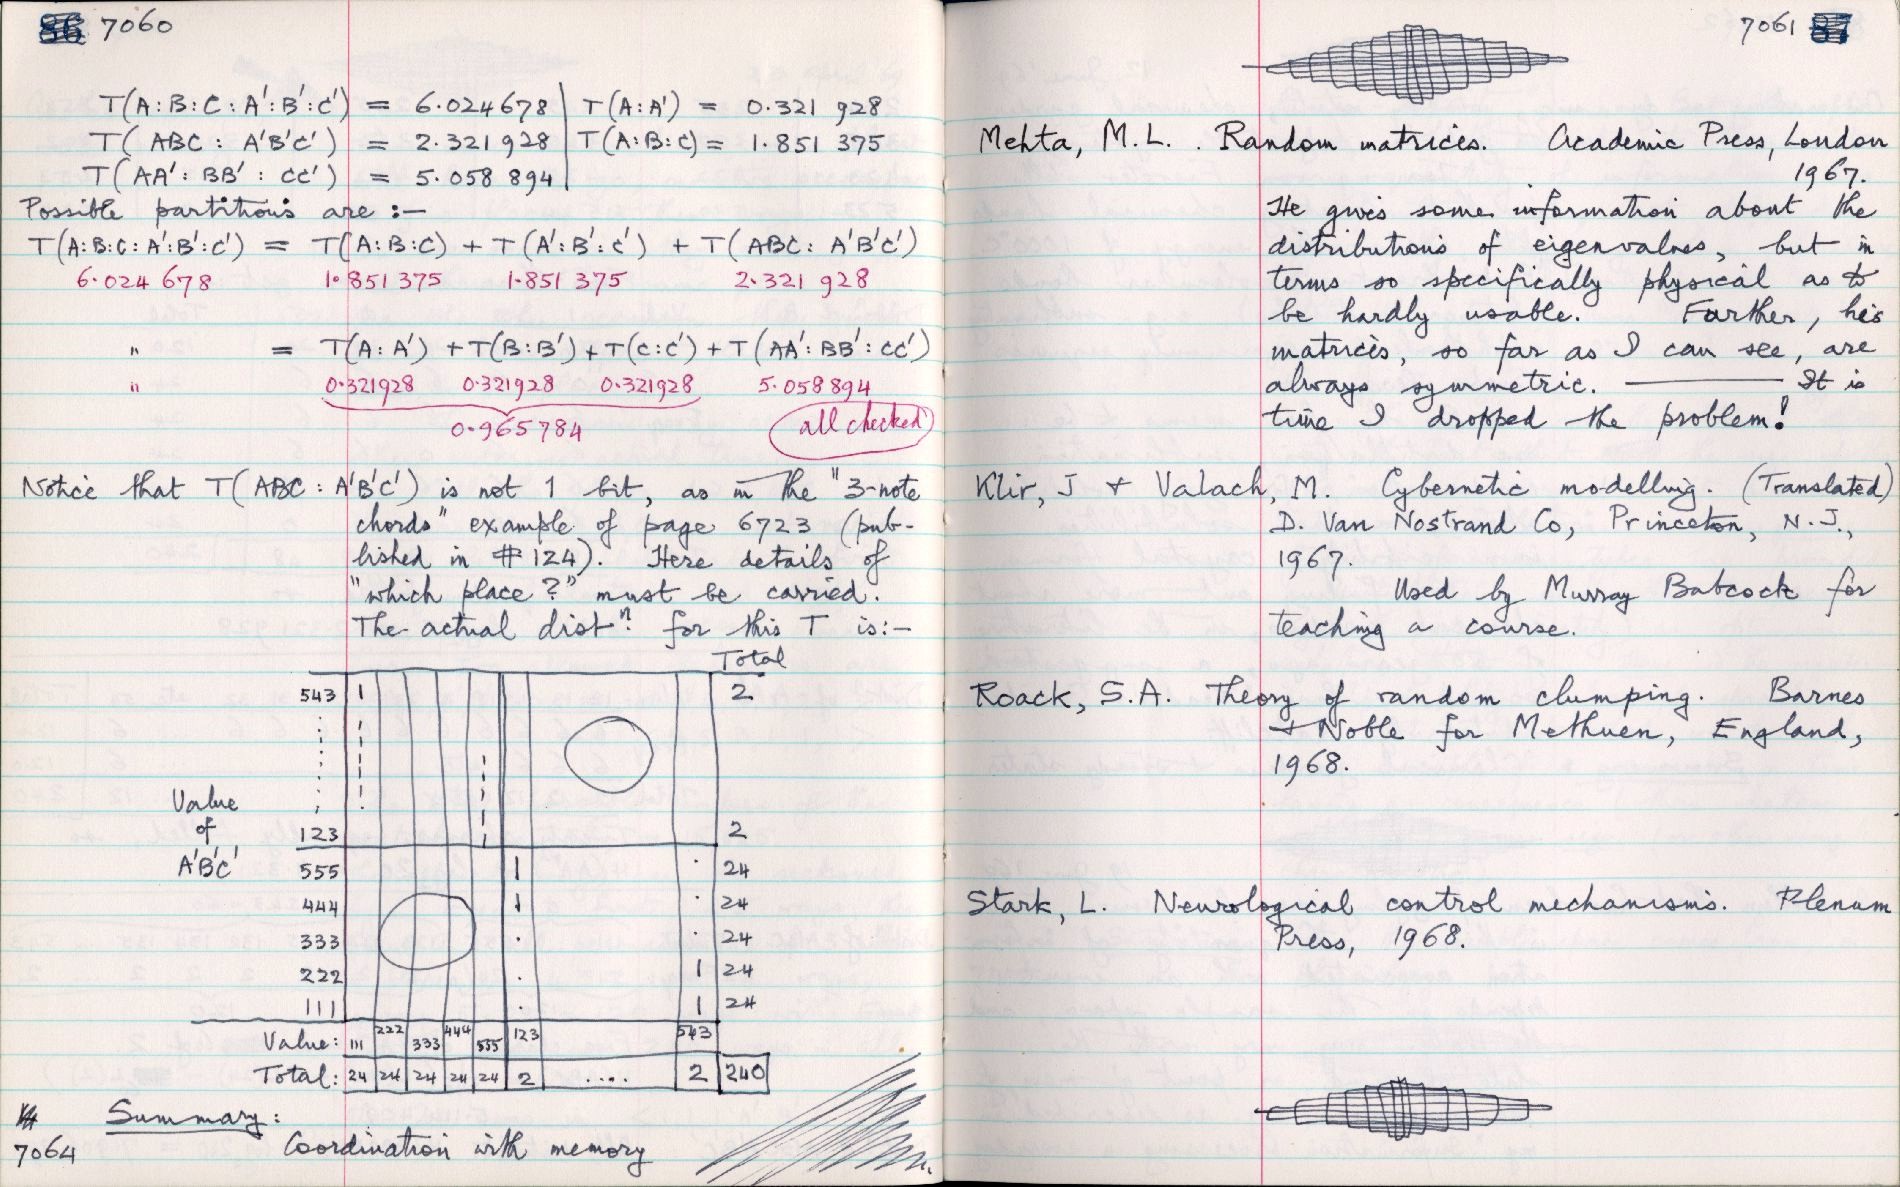 86 7060
T(A:B:C:A':B':C') = 6.024678 | T(A:A') = 0.321 928
T(ABC : A'B'C') = 2.321928 | T(A:B:C) = 1.851 375
T(AA':BB':CC') = 5.058 894 |
Possible partitions are :—
T(A:B:C:A':B':C') = T(A:B:C) + T(A':B':C') + T(ABC: A'B'C')
6.024 678 1.851 375 1.851 375 2.321 928
" = T(A:A') + T(B:B') + T(C:C') + T(AA':BB':CC')
" 0.321928 0.321928 0.321928 5.058894
0.965784 all checked
Notice that T(ABC : A'B'C') is not 1 bit, as in the "3-note
chords" example of page 6723 (pub-
lished in # 124). Here details of
"which place?" must be carried.
The actual distⁿ for this T is:—
Total
543 1 2
Value
of
A'B'C'
123 2
555 1 . 24
444 1 . 24
333 . . 24
222 . 1 24
111 . 1 24
Value: 111 222 333 444 555 123 543
Total: 24 24 24 24 24 2 .... 2 240
Summary:
7064 Coordination with memory
7061 87
Mehta, M.L. . Random matrices. Academic Press, London
1967.
He gives some information about the
distributions of eigenvalues, but in
terms so specifically physical as to
be hardly usable. Further, his
matrices, so far as I can see, are
always symmetric. ——— It is
time I dropped the problem!
Klir, J & Valach, M. Cybernetic modelling. (Translated)
D. Van Nostrand Co, Princeton, N.J.,
1967.
Used by Murray Babcock for
teaching a course.
Roack, S.A. Theory of random clumping. Barnes
& Noble for Methuen, England,
1968.
Stark, L. Neurological control mechanisms. Plenum
Press, 1968.